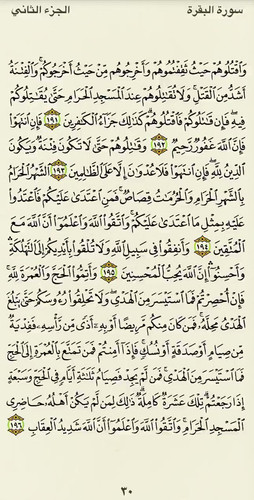 سورة البقرة الجزء الثاني
وَٱقۡتُلُوهُمۡ حَيۡثُ ثَقِفۡتُمُوهُمۡ وَأَخۡرِجُوهُم مِّنۡ حَيۡثُ أَخۡرَجُوكُمۡۚ وَٱلۡفِتۡنَةُ
أَشَدُّ مِنَ ٱلۡقَتۡلِۚ وَلَا تُقَٰتِلُوهُمۡ عِندَ ٱلۡمَسۡجِدِ ٱلۡحَرَامِ حَتَّىٰ يُقَٰتِلُوكُمۡ
فِيهِۖ فَإِن قَٰتَلُوكُمۡ فَٱقۡتُلُوهُمۡۗ كَذَٰلِكَ جَزَآءُ ٱلۡكَٰفِرِينَ ١٩١ فَإِنِ ٱنتَهَوۡاْ
فَإِنَّ ٱللَّهَ غَفُورٞ رَّحِيمٞ ١٩٢ وَقَٰتِلُوهُمۡ حَتَّىٰ لَا تَكُونَ فِتۡنَةٞ وَيَكُونَ
ٱلدِّينُ لِلَّهِۖ فَإِنِ ٱنتَهَوۡاْ فَلَا عُدۡوَٰنَ إِلَّا عَلَى ٱلظَّٰلِمِينَ ١٩٣ ٱلشَّهۡرُ ٱلۡحَرَامُ
بِٱلشَّهۡرِ ٱلۡحَرَامِ وَٱلۡحُرُمَٰتُ قِصَاصٞۚ فَمَنِ ٱعۡتَدَىٰ عَلَيۡكُمۡ فَٱعۡتَدُواْ
عَلَيۡهِ بِمِثۡلِ مَا ٱعۡتَدَىٰ عَلَيۡكُمۡۚ وَٱتَّقُواْ ٱللَّهَ وَٱعۡلَمُوٓاْ أَنَّ ٱللَّهَ مَعَ
ٱلۡمُتَّقِينَ ١٩٤ وَأَنفِقُواْ فِي سَبِيلِ ٱللَّهِ وَلَا تُلۡقُواْ بِأَيۡدِيكُمۡ إِلَى ٱلتَّهۡلُكَةِ
وَأَحۡسِنُوٓاْۚ إِنَّ ٱللَّهَ يُحِبُّ ٱلۡمُحۡسِنِينَ ١٩٥ وَأَتِمُّواْ ٱلۡحَجَّ وَٱلۡعُمۡرَةَ لِلَّهِۚ
فَإِنۡ أُحۡصِرۡتُمۡ فَمَا ٱسۡتَيۡسَرَ مِنَ ٱلۡهَدۡيِۖ وَلَا تَحۡلِقُواْ رُءُوسَكُمۡ حَتَّىٰ يَبۡلُغَ
ٱلۡهَدۡيُ مَحِلَّهُۥۚ فَمَن كَانَ مِنكُم مَّرِيضًا أَوۡ بِهِۦٓ أَذٗى مِّن رَّأۡسِهِۦ فَفِدۡيَةٞ
مِّن صِيَامٍ أَوۡ صَدَقَةٍ أَوۡ نُسُكٖۚ فَإِذَآ أَمِنتُمۡ فَمَن تَمَتَّعَ بِٱلۡعُمۡرَةِ إِلَى ٱلۡحَجِّ
فَمَا ٱسۡتَيۡسَرَ مِنَ ٱلۡهَدۡيِۚ فَمَن لَّمۡ يَجِدۡ فَصِيَامُ ثَلَٰثَةِ أَيَّامٖ فِي ٱلۡحَجِّ وَسَبۡعَةٍ
إِذَا رَجَعۡتُمۡۗ تِلۡكَ عَشَرَةٞ كَامِلَةٞۗ ذَٰلِكَ لِمَن لَّمۡ يَكُنۡ أَهۡلُهُۥ حَاضِرِي
ٱلۡمَسۡجِدِ ٱلۡحَرَامِۚ وَٱتَّقُواْ ٱللَّهَ وَٱعۡلَمُوٓاْ أَنَّ ٱللَّهَ شَدِيدُ ٱلۡعِقَابِ ١٩٦
٣٠